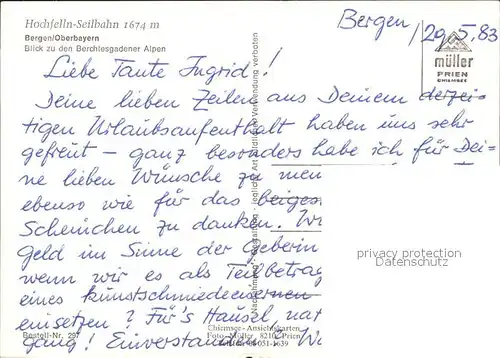 Hochfelln-Seilbahn 1674 m
Bergen/Oberbayern
Blick zu den Berchtesgadener Alpen
Bergen, 29.5.83
müller
PRIEN
CHIEMSEE
Liebe Tante Ingrid!
Deine lieben Zeilen aus Deinem derzei-
tigen Urlaubsaufenthalt haben uns sehr
gefreut – ganz besonders habe ich für Dei-
ne lieben Wünsche zu mein
ebenso wie für das beiges
Scheinchen zu danken. Wi
geld im Sinne der Geberin
wenn wir es als Teilbetrag
eines kunstschmiedeeisernen
einsetzen? Für's Häusel, nat
gang! Einverstan
privacy protection
Datenschutz
Bestell-Nr. 297
Chiemsee-Ansichtskarten
Foto-Müller, 8210 Prien
051-1639
jegliche Art bildlicher Verwendung verboten